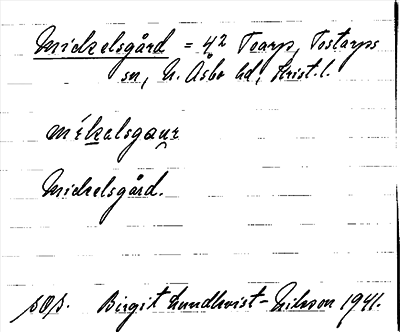 Mickelsgård = 4² Toarp, Tostarps
sn, N. Åsbo hd, Krist. l.
mékelsgaur
Mickelsgård.
sOs. Birgit Lundkvist-Nilsson 1941.